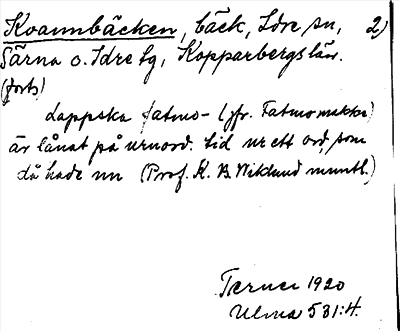 Kvarnbäcken, bäck, Idre sn, 2)
Särna o. Idre tg, Kopparbergs län.
(forts)
Lappska fatmo- (jfr. Fatmomakke)
är lånat på urnord. tid ur ett ord, som
då hade mn (Prof. K. B. Wiklund muntl.)
Terner 1920
Ulma 531:4.